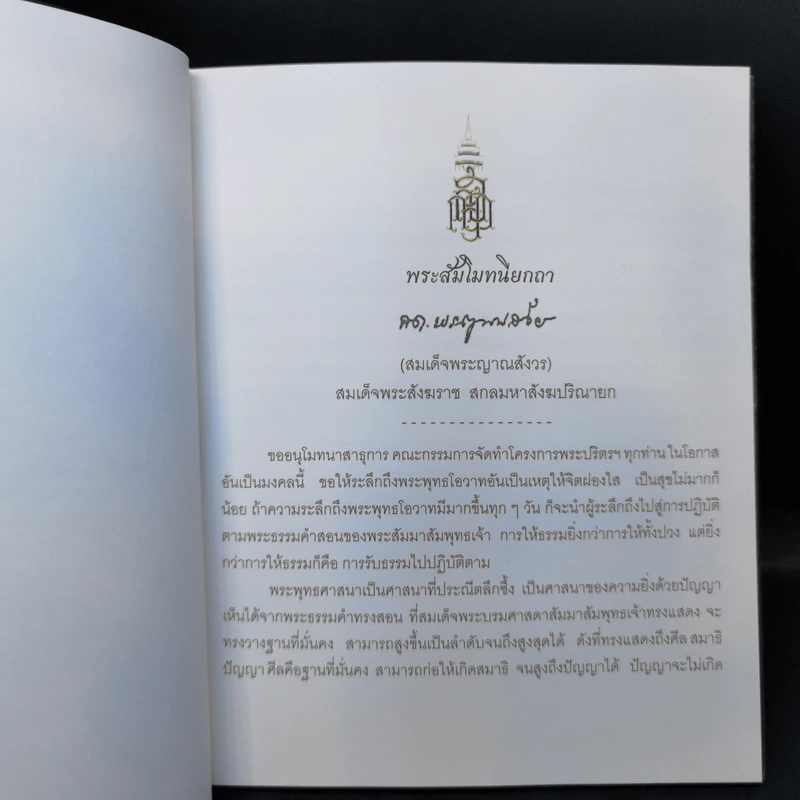 พระสัมโมทนียกถา
(สมเด็จพระญาณสังวร)
สมเด็จพระสังฆราช สกลมหาสังฆปริณายก
ขออนุโมทนาสาธุการ คณะกรรมการจัดทำโครงการพระปริตรฯ ทุกท่าน ในโอกาส
อันเป็นมงคลนี้ ขอให้ระลึกถึงพระพุทธโอวาทอันเป็นเหตุให้จิตผ่องใส เป็นสุขไม่มากก็
น้อย ถ้าความระลึกถึงพระพุทธโอวาทมีมากขึ้นทุก ๆ วัน ก็จะนำผู้ระลึกถึงไปสู่การปฏิบัติ
ตามพระธรรมคำสอนของพระสัมมาสัมพุทธเจ้า การให้ธรรมยิ่งกว่าการให้ทั้งปวง แต่ยิ่ง
กว่าการให้ธรรมก็คือ การรับธรรมไปปฏิบัติตาม
พระพุทธศาสนาเป็นศาสนาที่ประณีตลึกซึ้ง เป็นศาสนาของความยิ่งด้วยปัญญา
เห็นได้จากพระธรรมคำทรงสอน ที่สมเด็จพระบรมศาสดาสัมมาสัมพุทธเจ้าทรงแสดง จะ
ทรงวางฐานที่มั่นคง สามารถสูงขึ้นเป็นลำดับจนถึงสูงสุดได้ ดังที่ทรงแสดงถึงศีล สมาธิ
ปัญญา ศีลคือฐานที่มั่นคง สามารถก่อให้เกิดสมาธิ จนสูงถึงปัญญาได้ ปัญญาจะไม่เกิด